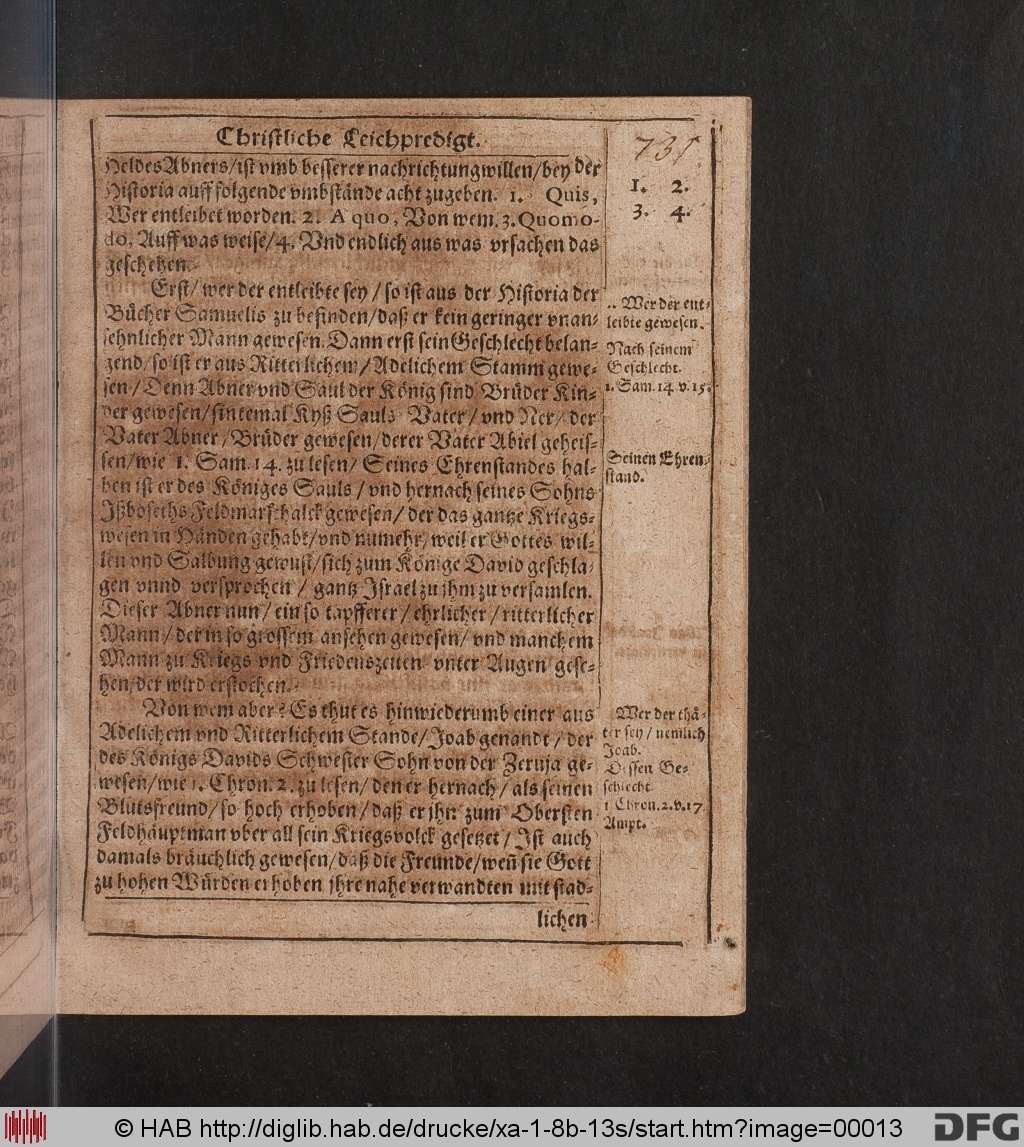 Christliche Leichpredigt.
731.
Heldes Abners/ist vmb besserer nachrichtung willen/bey der
Historia auff folgende vmbstände acht zugeben. 1. Quis,
Wer entleibet worden. 2. A quo, Von wem. 3. Quomo-
do, Auff was weise/4. Vnd endlich aus was vrsachen das
geschehen.
1. 2.
3. 4.
Erst/ wer der entleibte sey / so ist aus der Historia der
Bücher Samuelis zu befinden/daß er kein geringer vnan-
sehnlicher Mann gewesen. Dann erst sein Geschlecht belan-
gend/so ist er aus Ritterlichem/Adelichem Stamm gewe-
sen/Denn Abner vnd Saul der König sind Brüder Kin-
der gewesen/sintemal Kyß Sauls Vater / vnd Ner/ der
Vater Abner/Brüder gewesen/derer Vater Abiel geheis-
sen/wie 1. Sam. 14. zu lesen/ Seines Ehrenstandes hal-
ben ist er des Königes Sauls / vnd hernach seines Sohns
Ißboseths Feldmarschalck gewesen/ der das gantze Kriegs-
wesen in Händen gehabt/vnd numehr/weil er Gottes wil-
len vnd Salbung gewust/sich zum Könige David geschla-
gen vnnd versprochen / gantz Israel zu jhm zu versamlen.
Dieser Abner nun / ein so tapfferer / ehrlicher / ritterlicher
Mann / der in so grossem ansehen gewesen/ vnd manchem
Mann zu Kriegs vnd Friedenszeiten vnter Augen gese-
hen/der wird erstochen.
Wer der ent-
leibte gewesen.
Nach seinem
Geschlecht.
1. Sam. 14 v. 15.
Seinen Ehren-
stand.
Von wem aber? Es thut es hinwiederumb einer aus
Adelichem vnd Ritterlichem Stande/Joab genandt / der
des Königs Davids Schwester Sohn von der Zeruja ge-
wesen/wie 1. Chron. 2. zu lesen/den er hernach / als seinen
Blutsfreund/so hoch erhoben/daß er jhn zum Obersten
Feldhäuptman vber all sein Kriegsvolck gesetzet / Ist auch
damals bräuchlich gewesen/daß die Freunde/weñ sie Gott
zu hohen Würden erhoben jhre nahe verwandten mit stad-
lichen
Wer der thä-
ter sey / nemlich
Joab.
Dessen Ge-
schlecht.
1 Chron. 2. v. 17.
Ampt.
© HAB http://diglib.hab.de/drucke/xa-1-8b-13s/start.htm?image=00013
DFG